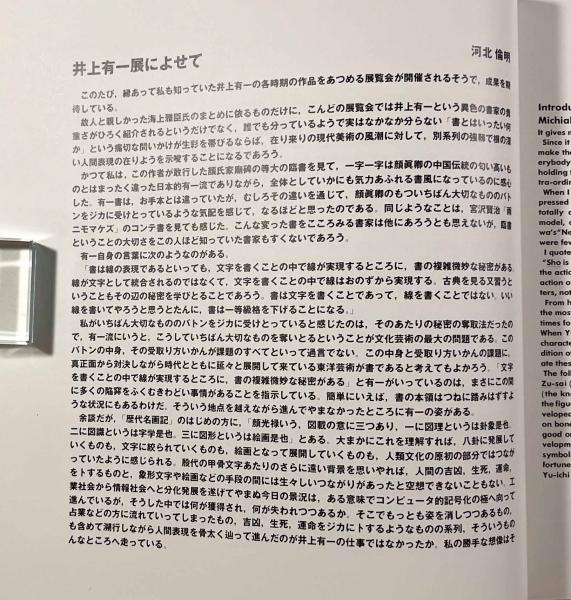 井上有一展によせて
河北 倫明
このたび，縁あって私も知っていた井上有一の各時期の作品をあつめる展覧会が開催されるそうで，成果を期
待している．
故人と親しかった海上雅臣氏のまとめに依るものだけに，こんどの展覧会では井上有一という異色の書家の貴
重さがひろく紹介されるというだけでなく，誰でも分っているようで実はなかなか分らない「書とはいったい何
か」という痛切な問いかけが生彩を帯びるならば，在り来りの現代美術の風潮に対して，別系列の強靱で根の深
い人間表現の在りようを示唆することになるであろう．
かつて私は，この作者が敢行した顔氏家廟碑の等大の臨書を見て，一字一字は顔眞卿の中国伝統の匂い高いも
のとはまったく違った日本的有一流でありながら，全体としていかにも気力あふれる書風になっているのに感心
した．有一書は，お手本とは違っていたが，むしろその違いを通じて，顔眞卿のもついちばん大切なもののバト
ンをジカに受けとっているような気配を感じて，なるほどと思ったのである．同じようなことは，宮沢賢治「雨
ニモマケズ」のコンテ書を見ても感じた．こんな変った書をこころみる書家は他にあろうとも思えないが，臨書
ということの大切さをこの人ほど知っていた書家もすくないであろう．
有一自身の言葉に次のようなのがある．
「書は線の表現であるといっても，文字を書くことの中で線が実現するところに，書の複雑微妙な秘密がある．
線が文字として統合されるのではなくて，文字を書くことの中で線はおのずから実現する．古典を見る又習うと
いうこともその辺の秘密を学びとることであろう．書は文字を書くことであって，線を書くことではない．いい
線を書いてやろうと思うとたんに，書は一等級格を下げることになる．」
私がいちばん大切なもののバトンをジカに受けとっていると感じたのは，そのあたりの秘密の奪取法だったの
で，有一流にいうと，こうしていちばん大切なものを奪いとるということが文化芸術の最大の問題である．この
バトンの中身，その受け取り方いかんが課題のすべてといって過言でない．この中身と受け取り方いかんの課題に，
真正面から対決しながら時代とともに延々と展開して来ている東洋芸術が書であると考えてもよかろう．「文字
を書くことの中で線が実現するところに，書の複雑微妙な秘密がある」と有一がいっているのは，まさにこの間
に多くの陥穽をふくむきわどい事情があることを指示している．簡単にいえば，書の本領はつねに踏みはずすよ
うな状況にもあるわけだ．そういう地点を越えながら進んでやまなかったところに有一の姿がある．
余談だが，「歴代名画記」のはじめの方に，「顔光禄いう，図載の意に三つあり，一に図理というは卦象是也．
二に図識というは字学是也．三に図形というは絵画是也」とある．大まかにこれを理解すれば，八卦に発展して
いくものも，文字に絞られていくものも，絵画となって展開していくものも，人類文化の原初の部分ではつなが
っていたように感じられる．殷代の甲骨文字あたりのさらに遠い背景を思いやれば，人間の吉凶，生死，運命，
を卜するものと，象形文字や絵画などの手段の間には生々しいつながりがあったと空想できないこともない．工
業社会から情報社会へと分化発展を遂げてやまぬ今日の景況は，ある意味でコンピュータ的記号化の極へ向って
進んでいるが，そうした中では何が獲得され，何が失われつつあるか．そこでもっとも姿を消しつつあるもの，
占業などの方に流れていってしまったもの，吉凶，生死，運命をジカに卜するようなものの系列，そういうもの
も含めて溯行しながら人間表現を骨太く辿って進んだのが井上有一の仕事ではなかったか．私の勝手な想像はそ
んなところへ走っている．
Introdu
Michial
It gives m
Since it
make the
erybody
holding t
tra-ordin
When I
pressed
totally
model,
wa's"Ne
were few
I quote
"Sho is
the action
action of
ters, not
From h
the most
times fo
When Y
characte
dition of
ate thes
The foll
Zu-sai (
(the kno
the figur
veloped
on bone
good or
velopm
symbols
fortune
Yu-ichi